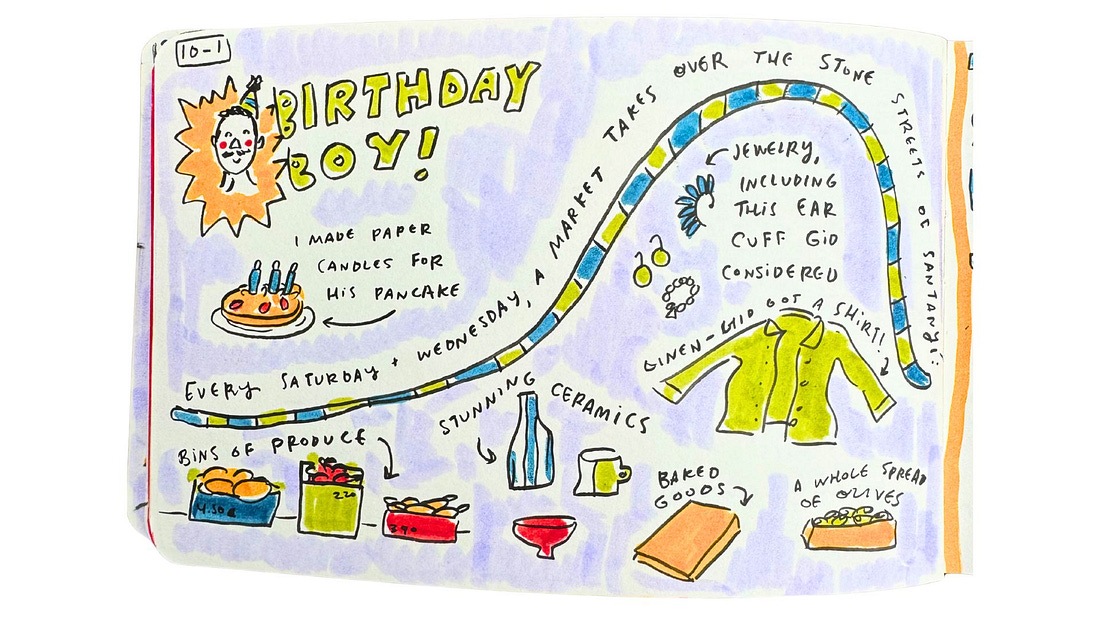 10-1
BIRTHDAY
BOY!
I MADE PAPER
CANDLES FOR
HIS PANCAKE
EVERY SATURDAY + WEDNESDAY, A MARKET TAKES OVER THE STONE STREETS OF SANTANYÍ:
JEWELRY,
INCLUDING
THIS EAR
CUFF GIO
CONSIDERED
LINEN-GIO GOT A SHIRT!
STUNNING CERAMICS
BINS OF PRODUCE
220
390
BAKED
GOODS
A WHOLE SPREAD
OF OLIVES